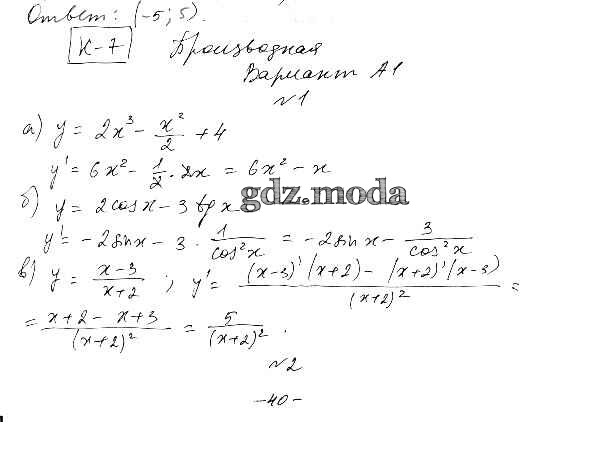 Ответ: (-5; 5).
К-7 Производная
Вариант А1
№1
а) y = 2x³ - x²/2 + 4
y' = 6x² - 1/2 · 2x = 6x² - x
б) y = 2cos x - 3 tg x
gdz.moda
y' = -2sin x - 3 · 1/cos²x = -2sin x - 3/cos²x
в) y = (x-3)/(x+2) ; y' = ((x-3)'(x+2) - (x+2)'(x-3))/(x+2)² =
= (x+2 - x+3)/(x+2)² = 5/(x+2)² .
№2
-40-